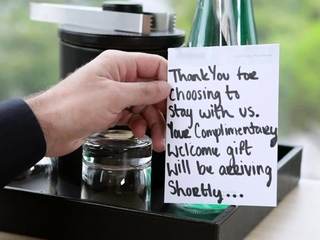 Thank You for
Choosing to
stay with us.
Your Complimentary
Welcome gift
will be arriving
Shortly...